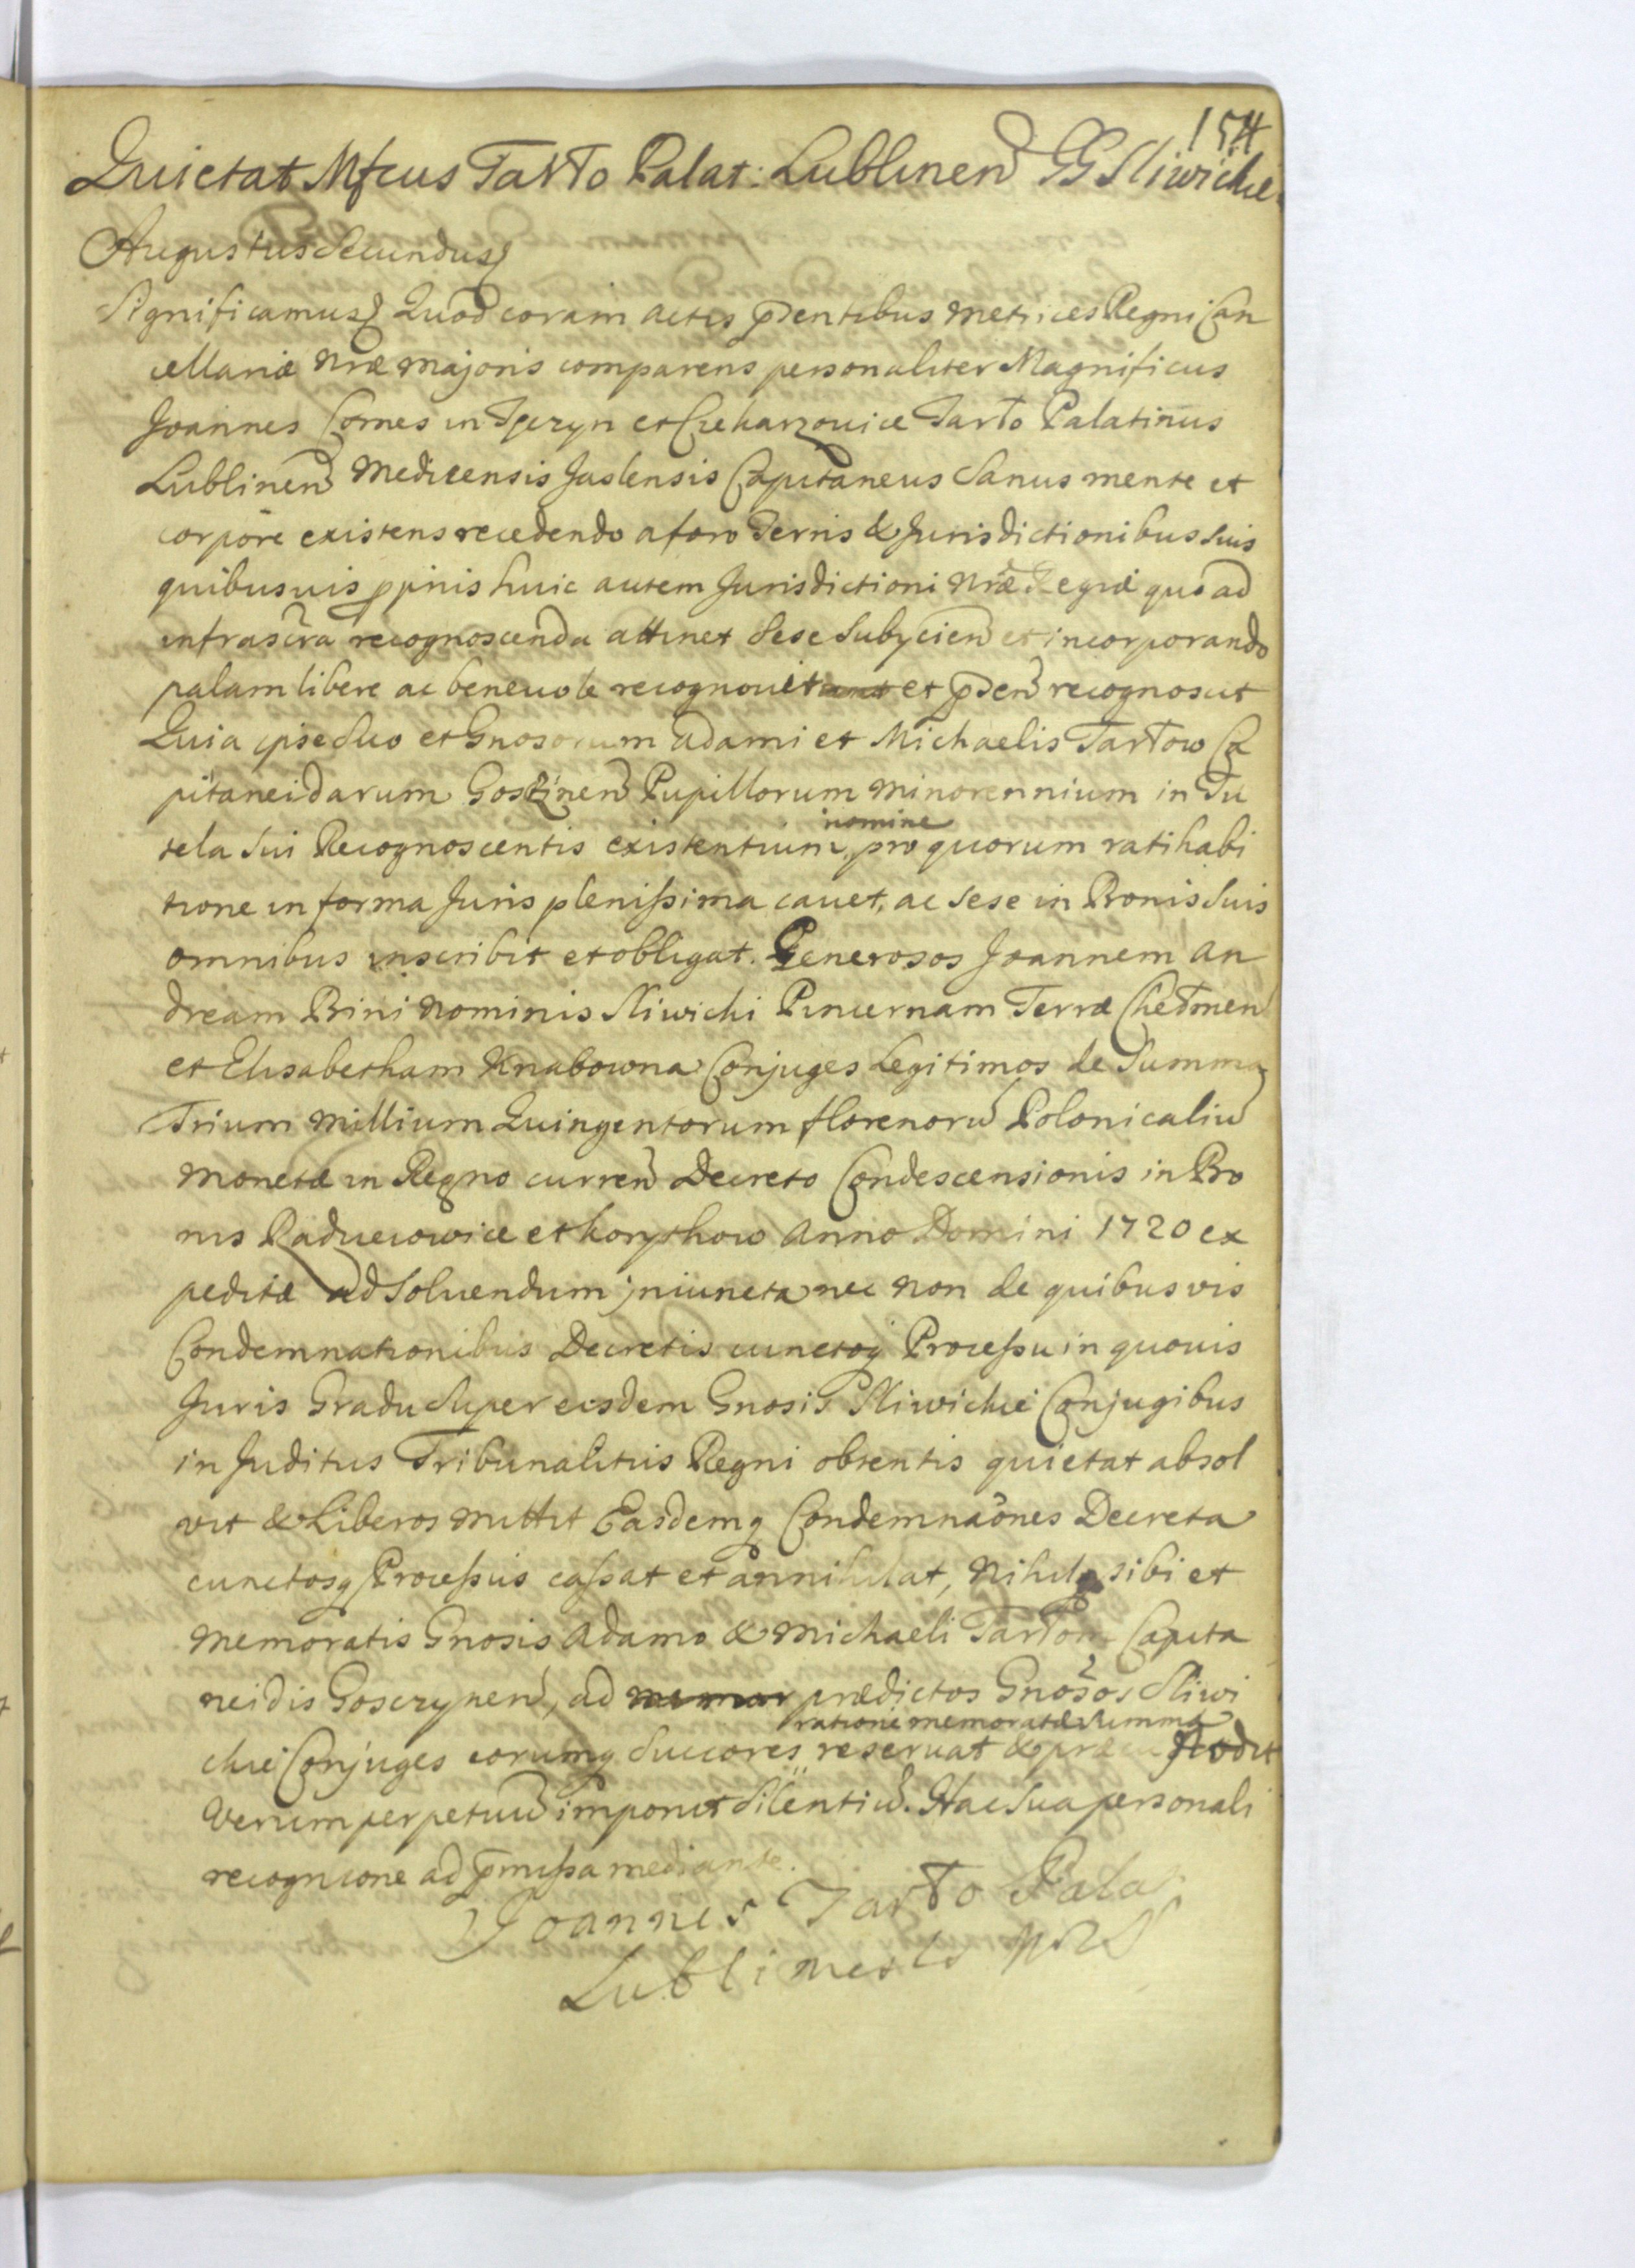 154
Quietat Mfcus Tarło Palat: Lublinen GG Sliwickie
Augustus Secundus
Significamus Quod coram actis pdentibus Metrices Regni Can
cellariæ Nræ Majoris comparens personaliter Magnificus
Joannes Comes in Tęczyn et Czekarzowice Tarło Palatinus
Lublinen Medicensis Jaslensis Capitaneus Sanus mente et
corpore existens recedendo a foro Terris & Jurisdictionibus Suis
quibusuis ppriis huic autem Jurisdictioni Nræ Regiæ quo ad
infrascra recognoscenda attinet Sese Subycien et incorporando
palam libere ac beneuole recognouit et pden recognoscit
Quia ipse Suo et Gnosorum Adami et Michaelis Tarłow Ca
pitaneidarum Goszinen Pupillorum Minorennium in Tu
tela Sui Recognoscentis existentium, nomine pro quorum ratihabi
tione in forma Juris plenissima cauet, ac Sese in Bonis Suis
omnibus inscribit et obligat. Generosos Joannem An
dream Bini Nominis Sliwicki Pincernam Terræ Chełmen
et Elisabetham Knabowna Conjuges Legitimos de Summa
Trium Millium Quingentorum florenoru Polonicaliu
Monetæ in Regno curren Decreto Condescensionis in Bo
nis Raduciowice et korythow Anno Domini 1720 ex
peditæ ad Soluendum jniuncta nec non de quibus vis
Condemnationibus Decretis cunctoq Processu in quouis
Juris Gradu Super eisdem Gnosis Sliwickie Conjugibus
in Juditus Tribunalitiis Regni obtentis quietat absol
vit & Liberos Mittit Easdemq Condemnaones Decreta
cunctosq Processus cassat et annihilat, Nihilq sibi et
Memoratis Gnosis Adamo & Michaeli Tarłom Capita
neidis Goscrynen, ad prædictos Gnosos Sliwi
ratione memoratæ Summæ
ckie Conjuges eorumq Succores reseruat &
Verum perpetuu imponit Silentiu. Hac Sua personali
recognione ad pmissa mediante.
Joannes Tarło Palat
Lubliness